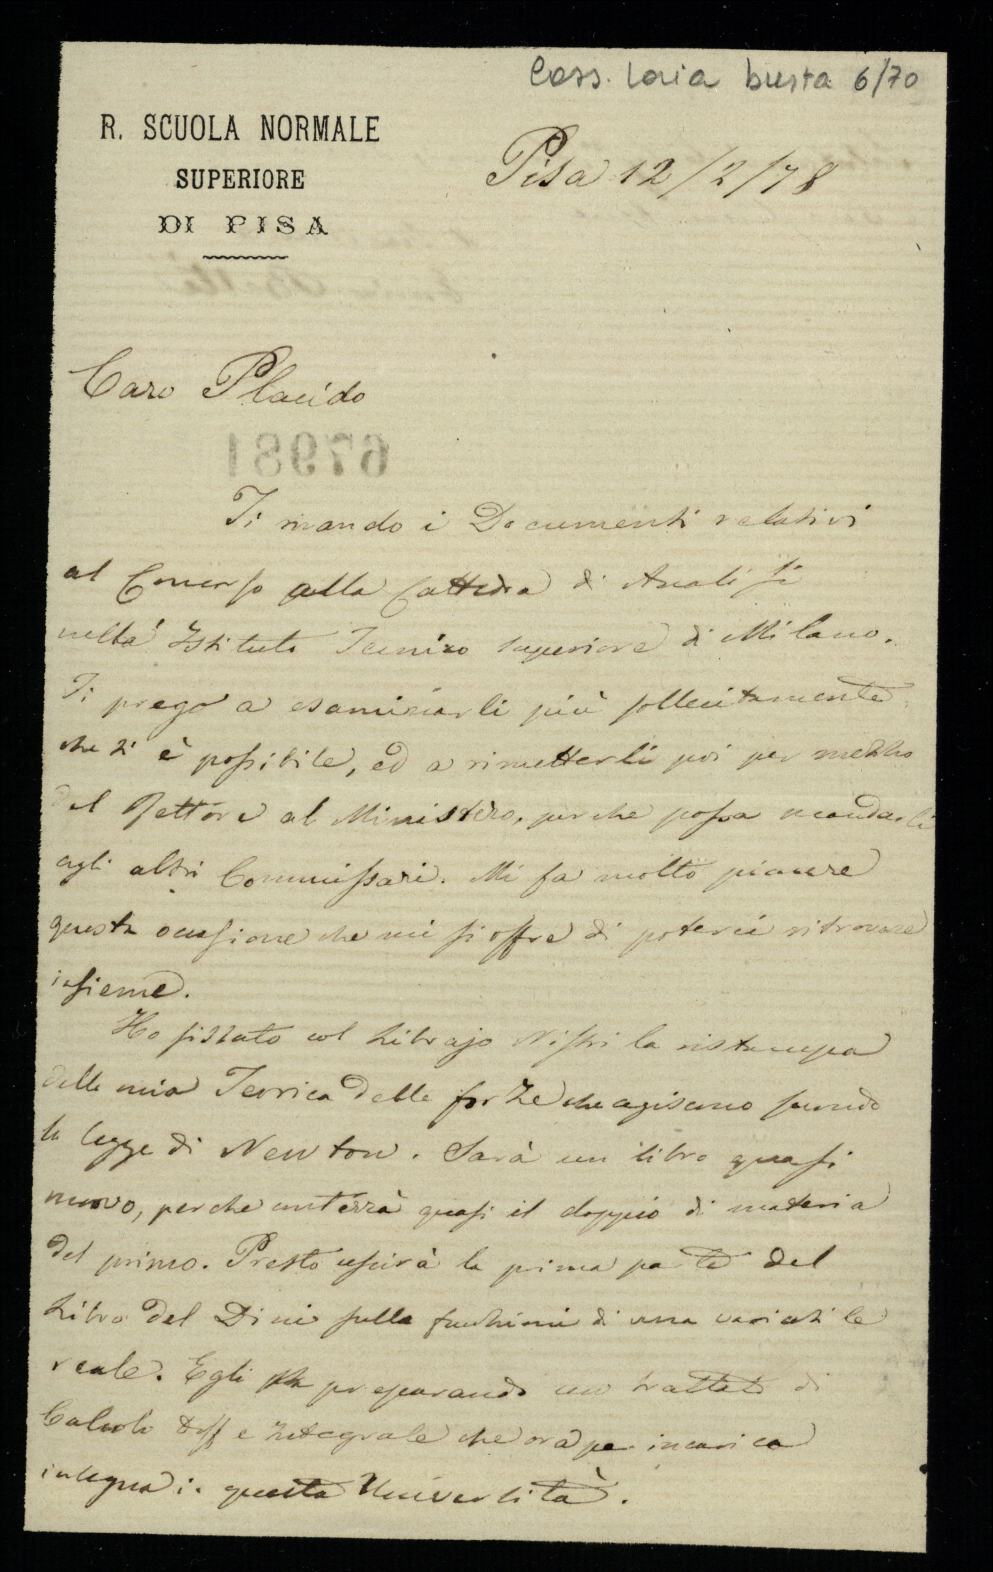 Cass. Loria busta 6/70
R. SCUOLA NORMALE
SUPERIORE
DI PISA
Pisa 12/2/78
Caro Placido
67981
Ti mando i Documenti relativi
al Concorso alla Cattedra di Analisi
nell' Istituto Tecnico Superiore di Milano.
Ti prego a esaminarli più sollecitamente
che ti è possibile, ed a rimetterli poi per mezzo
del Rettore al Ministero, perche possa mandarli
agli altri Commissari. Mi fa molto piacere
questa occasione che mi si offre di poterci ritrovare
insieme.
Ho fissato col Librajo Nistri la ristampa
della mia Teorica delle forze che agiscono secondo
la legge di Newton. Sarà un libro quasi
nuovo, perche conterrà quasi il doppio di materia
del primo. Presto uscirà la prima parte del
Libro del Dini sulle funzioni di una variabile
reale. Egli sta preparando un trattato di
Calcolo Diff e Integrale che ora per incarico
insegna in questa Università.